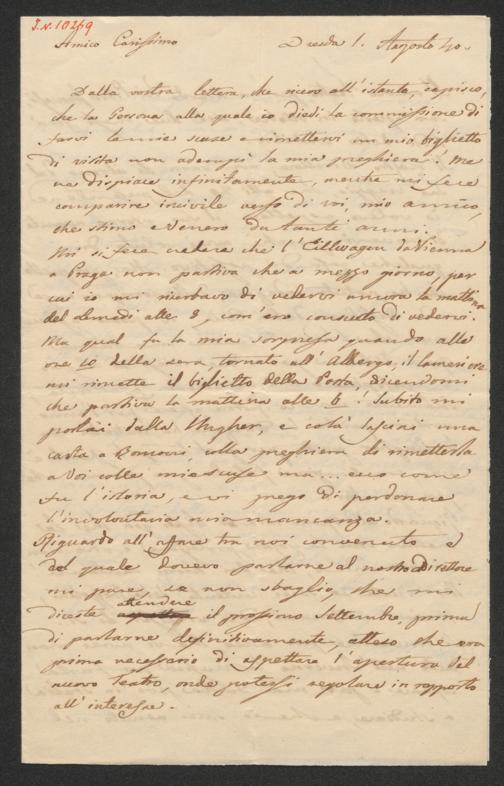 I.N. 10269
Amico Carissimo Dresda 1. Agosto 40.
Dalla vostra lettera, che ricevo all'istante, capisco,
che la Persona alla quale io diedi la commissione di
farvi le mie scuse e rimettervi un mio biglietto
di visita non adempì la mia preghiera. Me
ne dispiace infinitamente, mentre mi fece
comparire incivile verso di voi, mio amico,
che stimo e venero da tanti anni.
Mi si fece credere che l'Eillwagen da Vienna
a Praga non partiva che a mezzo giorno, per
cui io mi riserbavo di vedervi ancora la mattina
del Lunedì alle 8, com'ero consueto di vedervi.
Ma qual fu la mia sorpresa quando alle
ore 10 della sera tornato all'Albergo, il cameriere
mi rimette il biglietto della Posta, dicendomi
che partiva la mattina alle 6! Subito mi
portai dalla Ungher, e colà lasciai una
carta a colla preghiera di rimetterla
a Voi colle mie scuse ma... ecco come
fu l'istoria, e vi prego di perdonare
l'involontaria mia mancanza.
Riguardo all'affare tra noi convenuto e
del quale dovevo parlarne al nostro Direttore
mi pare, se non sbaglio, che mi
diceste attendere il prossimo Settembre, prima
di parlarne definitivamente, atteso che era
prima necessario di aspettare l'apertura del
nuovo Teatro, onde potersi regolare in rapporto
all'interesse.